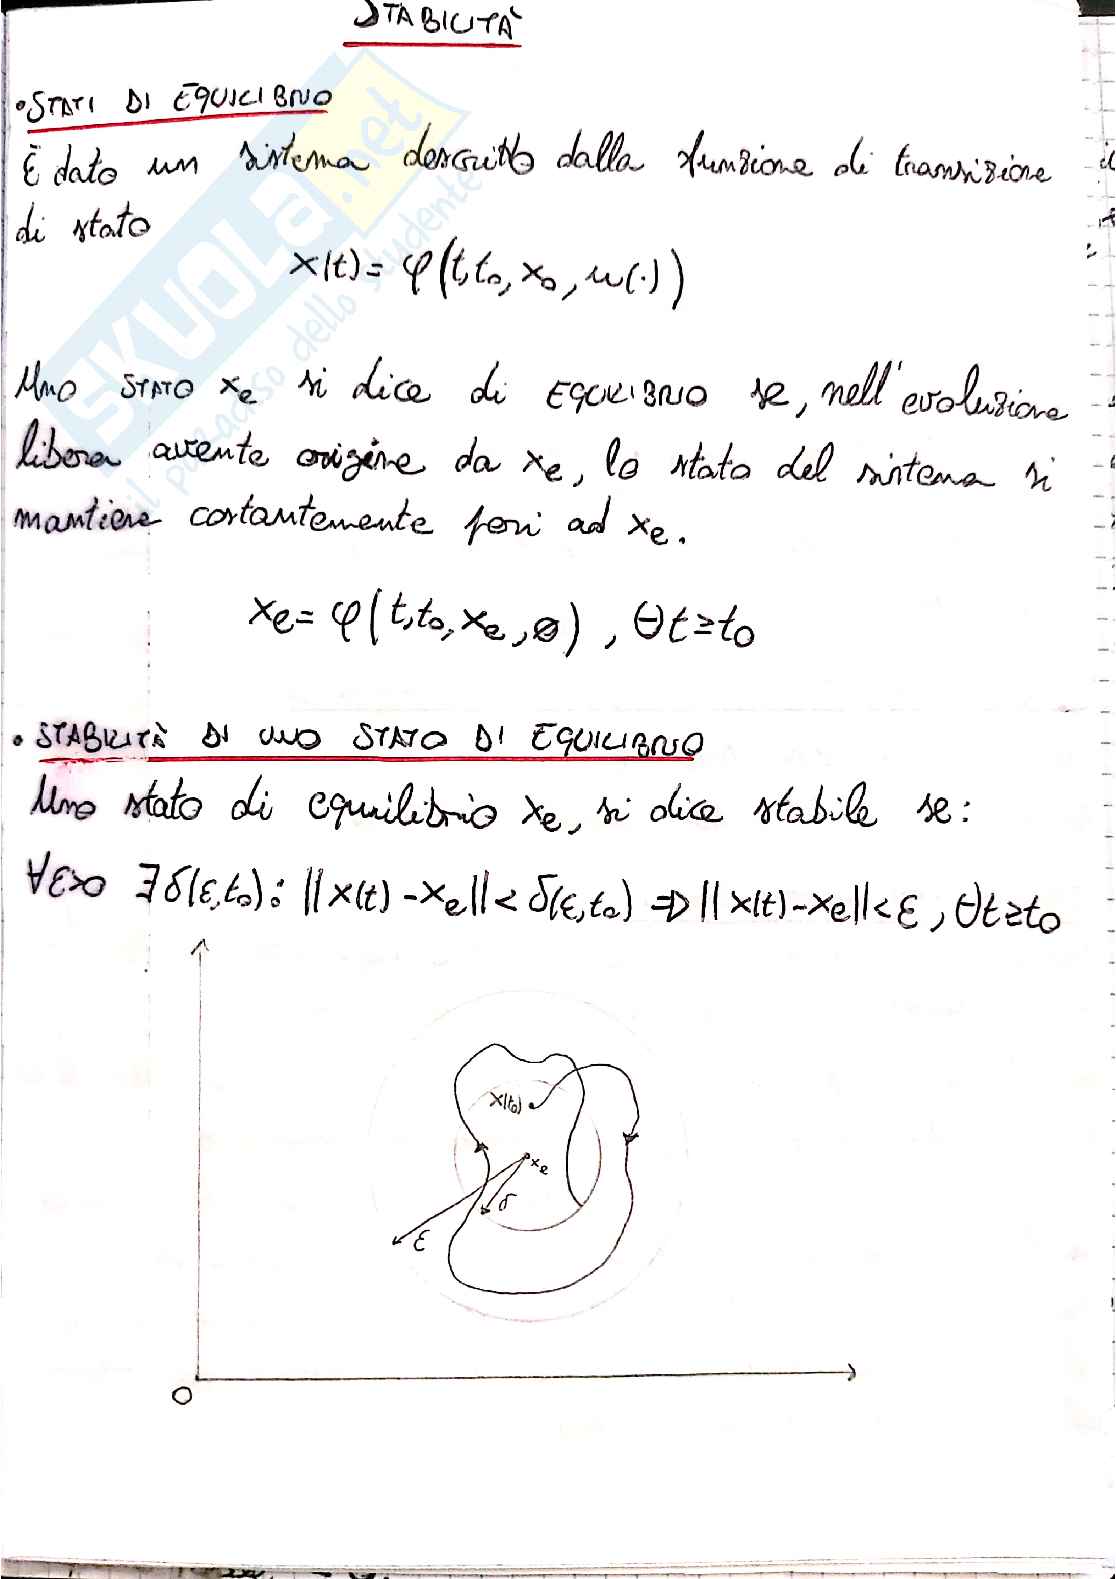 STABILITÀ
• STATI DI EQUILIBRIO
È dato un sistema descritto dalla funzione di transizione
di stato
x(t) = φ(t, t₀, x₀, u(·))
Uno STATO xₑ si dice di EQUILIBRIO se, nell'evoluzione
libera avente origine da xₑ, lo stato del sistema si
mantiene costantemente pari ad xₑ.
xₑ = φ(t, t₀, xₑ, ∅) , ∀t ≥ t₀
• STABILITÀ DI UNO STATO DI EQUILIBRIO
Uno stato di equilibrio xₑ, si dice stabile se:
∀ε>0 ∃ δ(ε,t₀): ||x(t) - xₑ|| < δ(ε,t₀) ⇒ || x(t) - xₑ|| < ε , ∀t ≥ t₀
x(t₀)
xₑ
δ
ε
O
SKUOLA.net
il paradiso dello studente